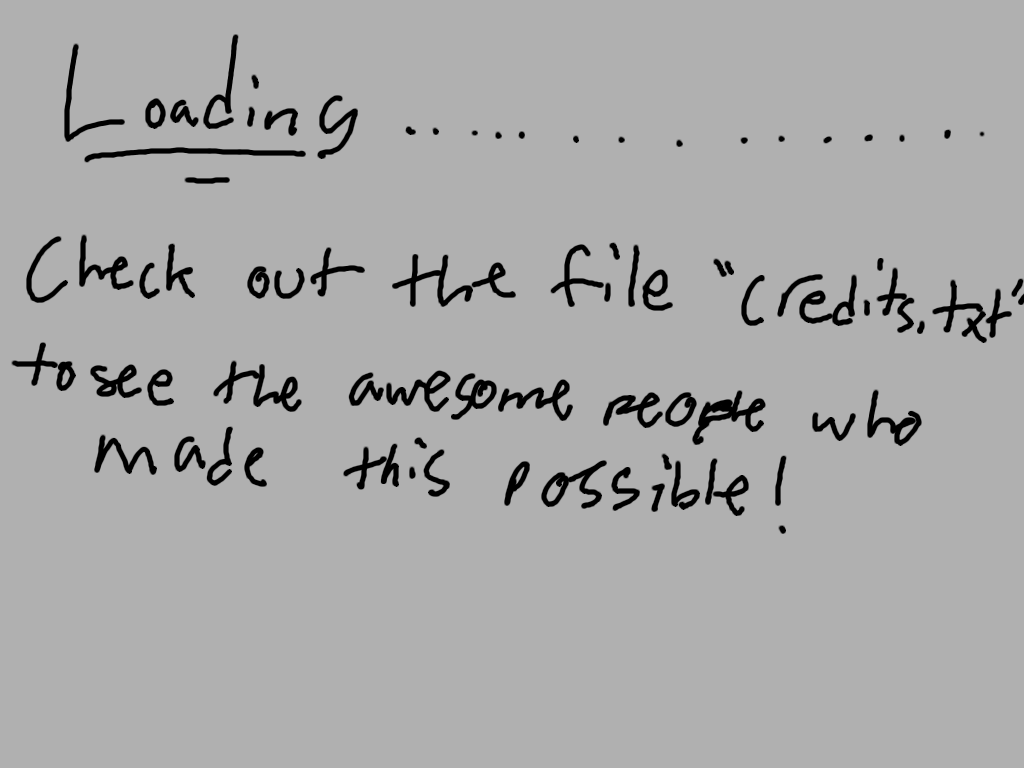 Loading .................
Check out the file "Credits.txt"
to see the awesome people who
made this possible!